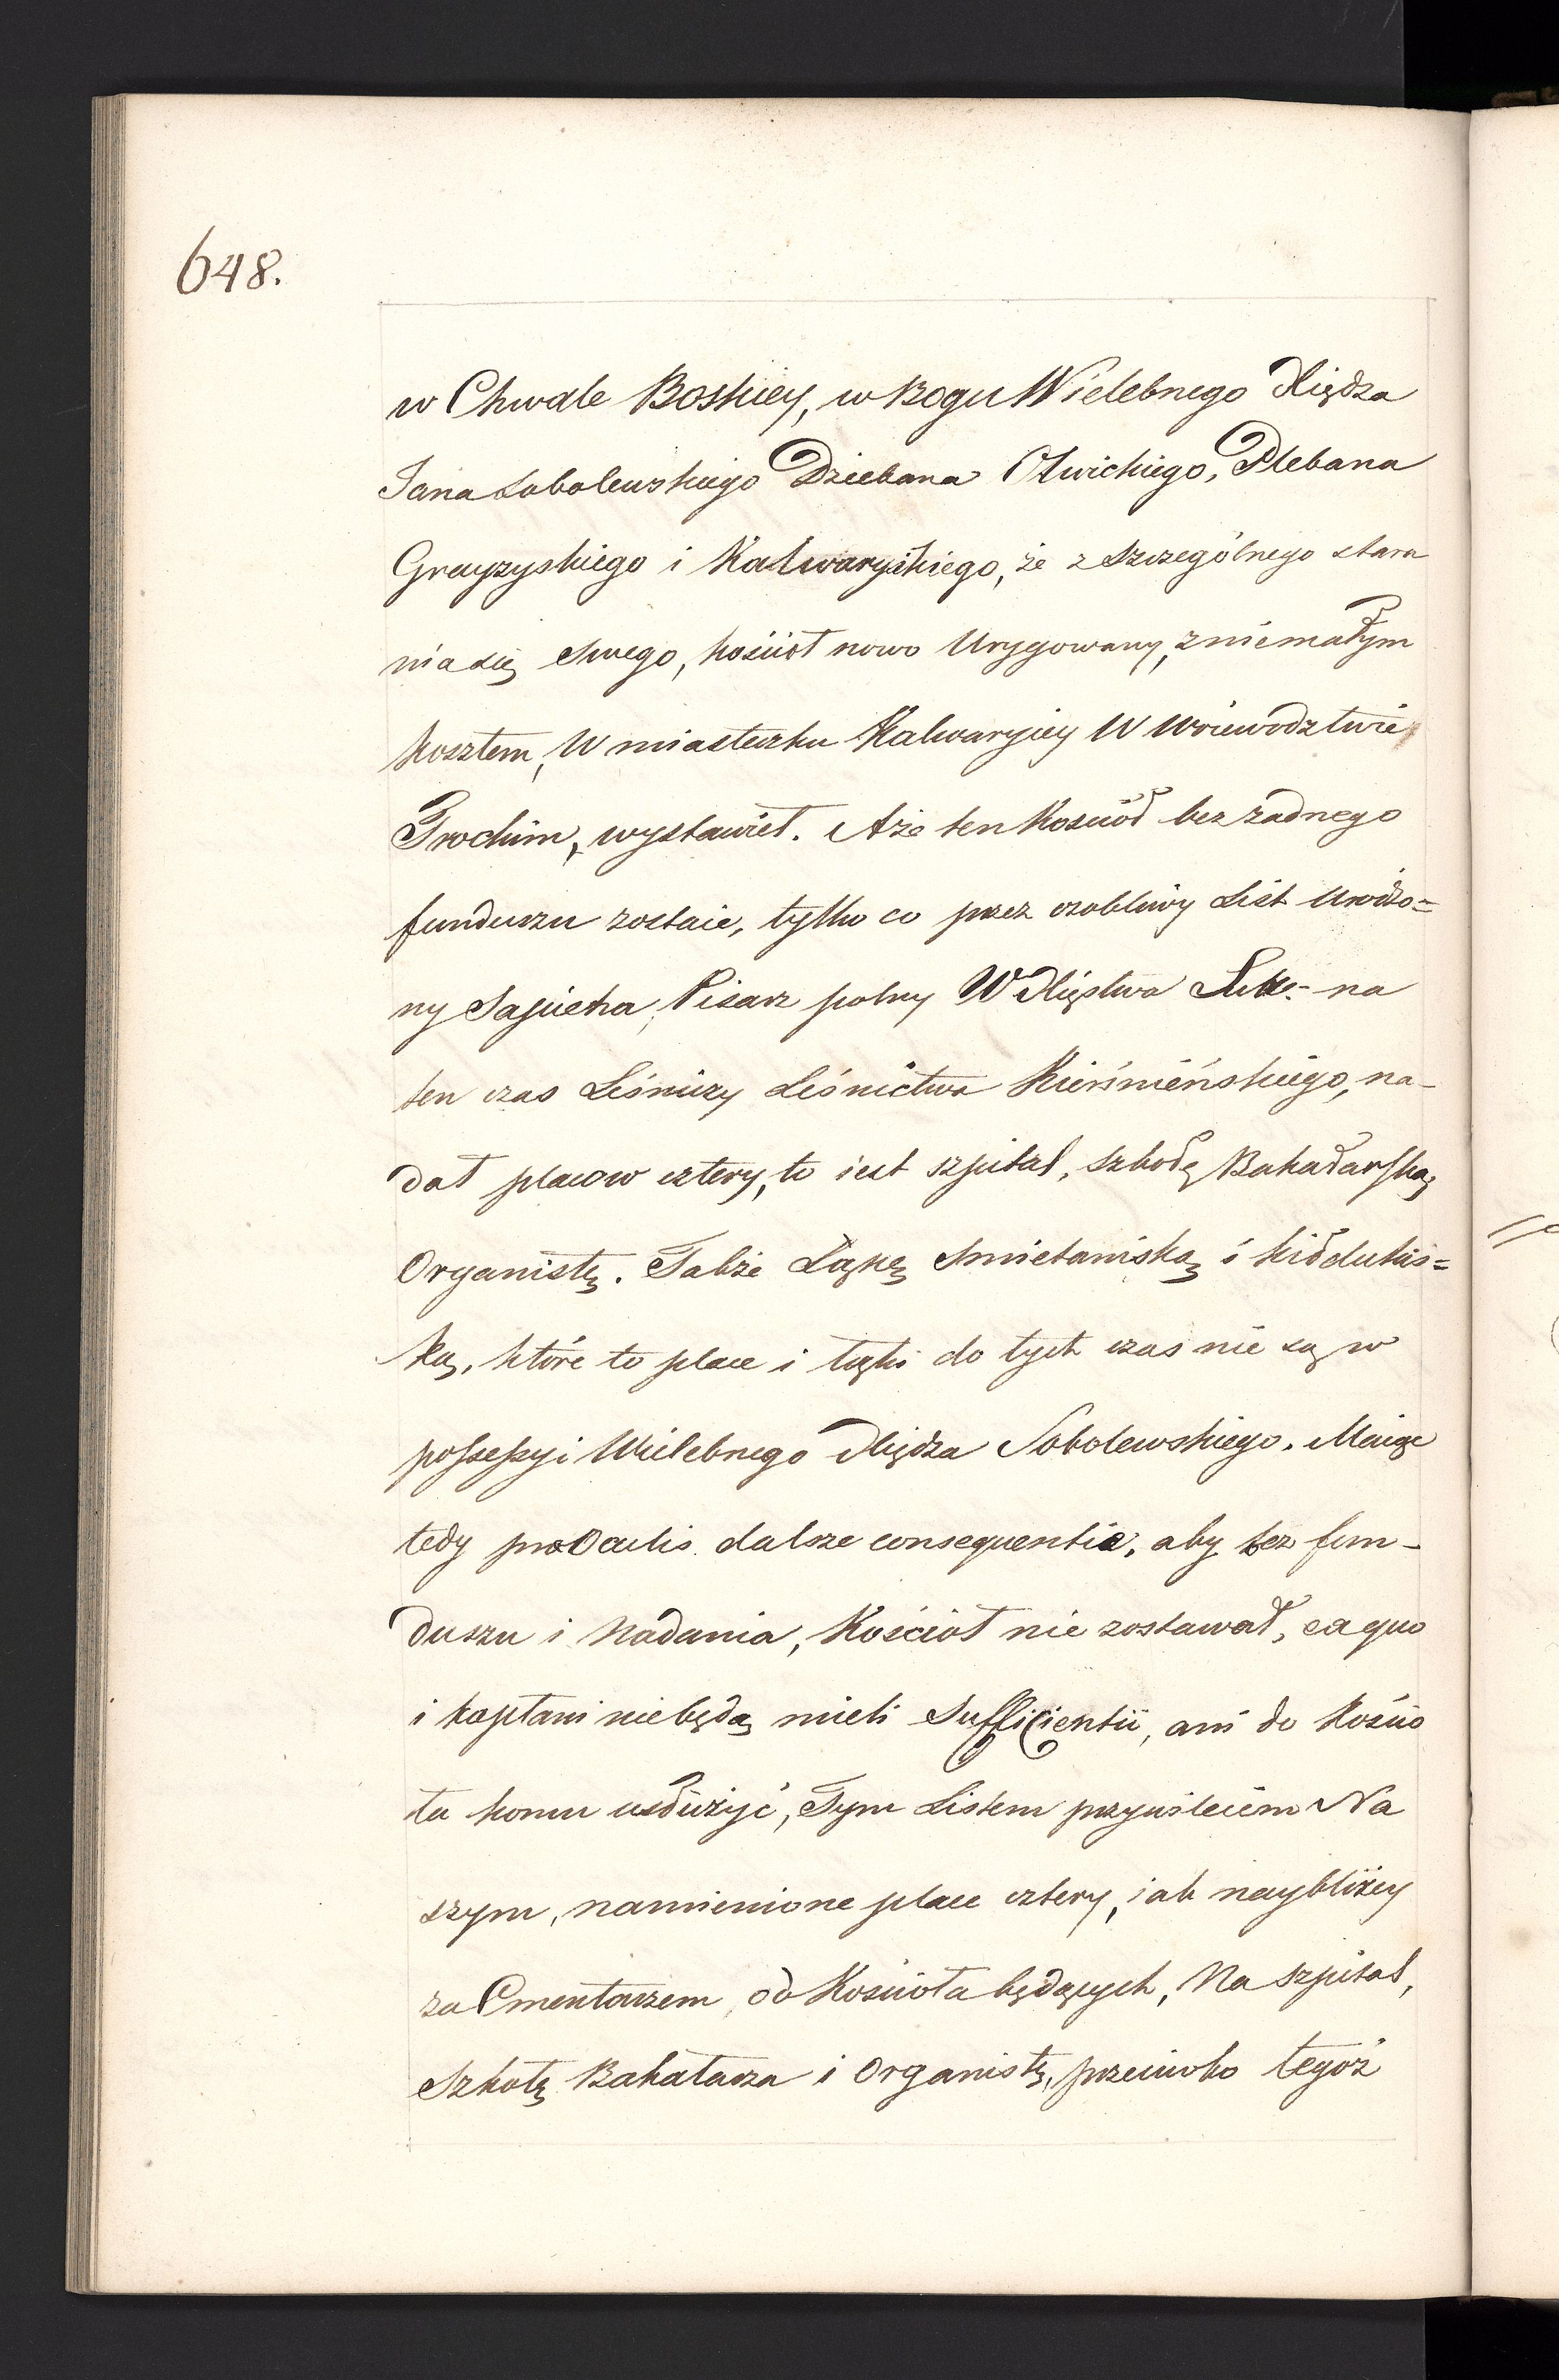 648.
w Chwale Boskiey, w Bogu Wielebnego Xiędza
Jana Sobolewskiego Dziekana Olwickiego, Plebana
Grażyskiego i Kalwaryiskiego, że z szczególnego stara
nia się swego, kościoł nowo Urygowany, z niemałym
kosztem, W miasteczku Kalwaryiey W Woiewodztwie
Trockim, wystawił. A że ten Kościół bez żadnego
funduszu zostaie, tylko co przez osobliwy List Urodzo=
ny Sapieha, Pisarz polny W Xięstwa Litt:- na
ten czas Leśniczy Leśnictwa Kierśnieńskiego, na-
dał placow cztery, to iest szpital, szkołę Bakałarską
Organistę. Także Łąkę Smietaniską i Kidduliś=
ką, które to place i łąki do tych czas nie są w
possessyi Wielebnego Xiędza Sobolewskiego. Maiąc
tedy prae Oculis dalsze consequentie, aby bez fun-
duszu i Nadania, Kościoł nie zostawał, ea quo
i kapłani niebędą mieli Sufficientii, ani do Kościo
ła komu usłużyć, Tym Listem przywileiem Na
szym, namienione place cztery, iak naybliżey
za Cmentarzem od Kościoła będących, Na szpital,
Szkołę Bakałarza i Organistę, przeciwko tegoż